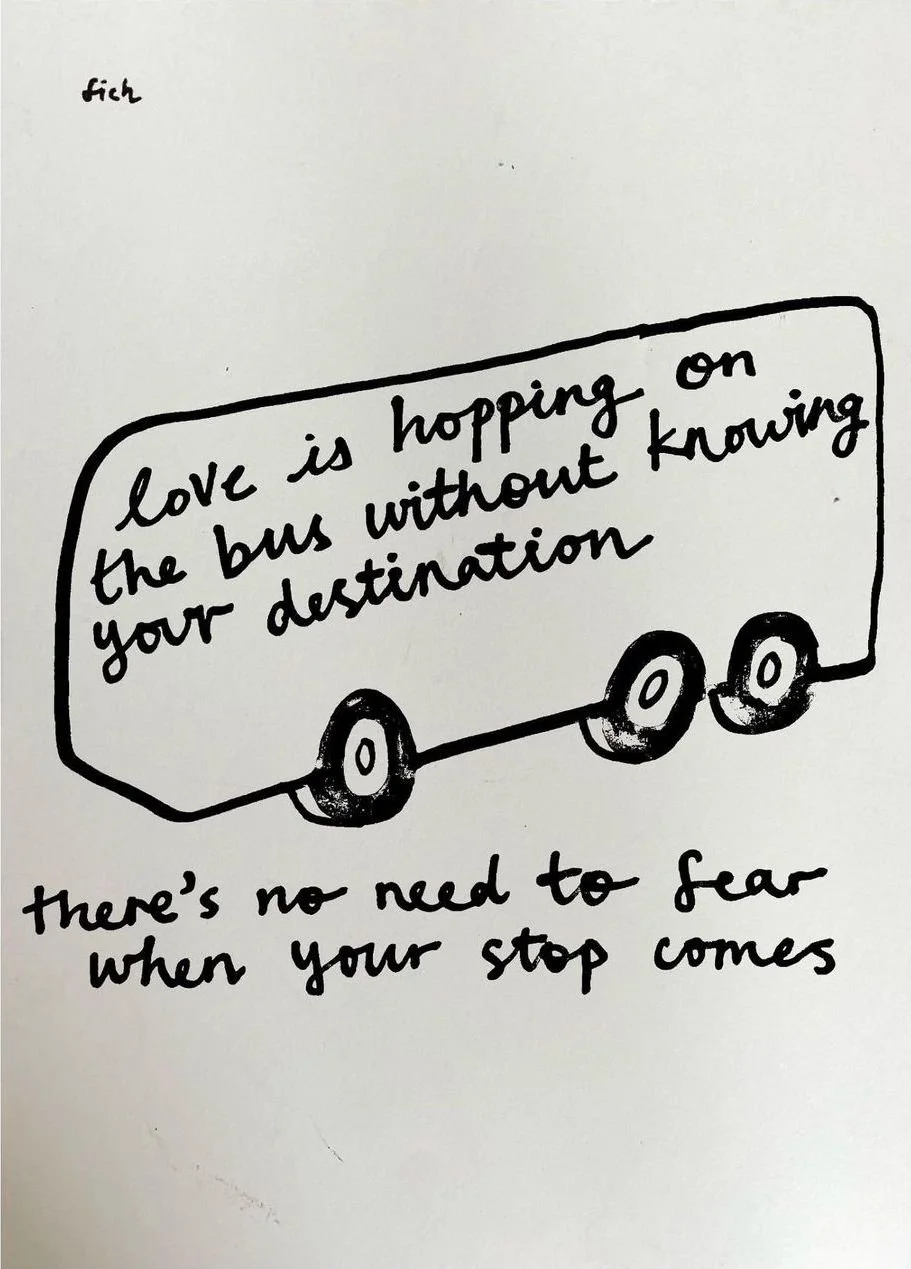 fich
love is hopping on
the bus without knowing
your destination
there's no need to fear
when your stop comes